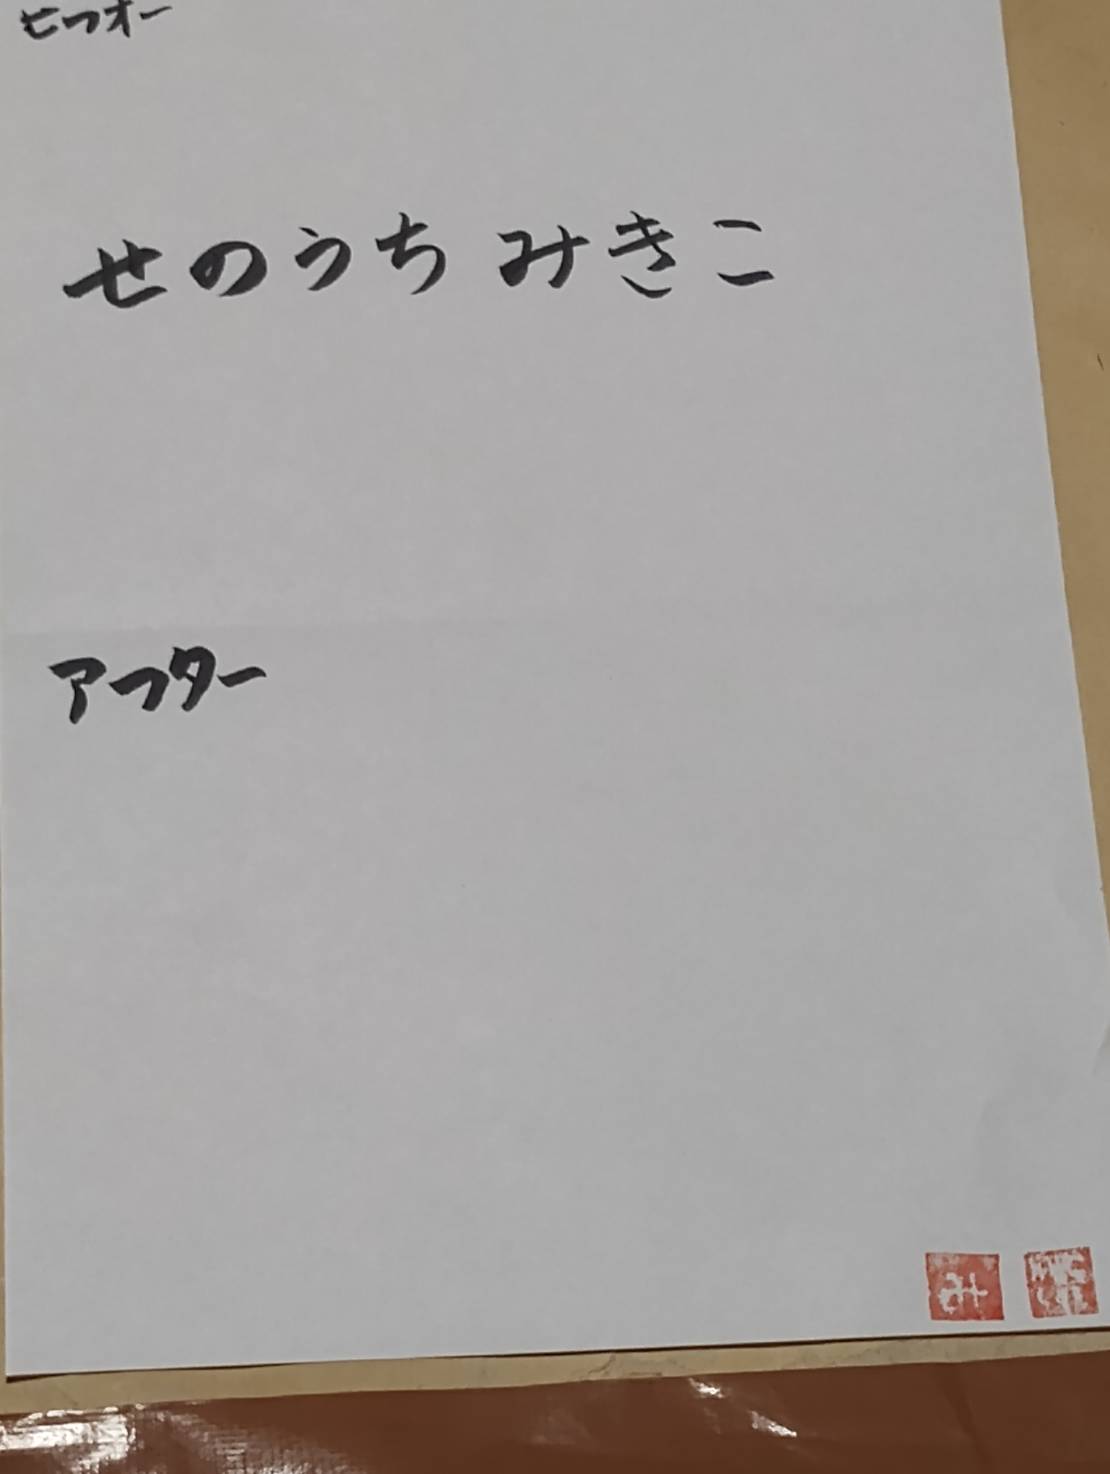 ビフォー
せのうち みきこ
アフター
み